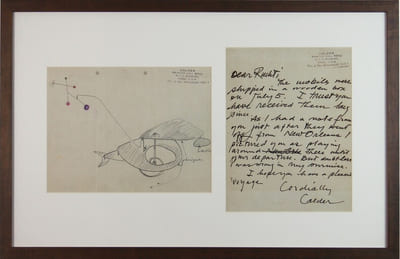 CALDER
Dear
The mobiles were
shipped in a wooden box
on July 5. I trust you
have received them long
since.
As I had a note from
you just after they went
off from New Orleans I
pictured you as playing
around there
your departure. But doubtless
I was wrong in my surmise.
I hope you have a pleasant
voyage
Cordially
Calder
CALDER